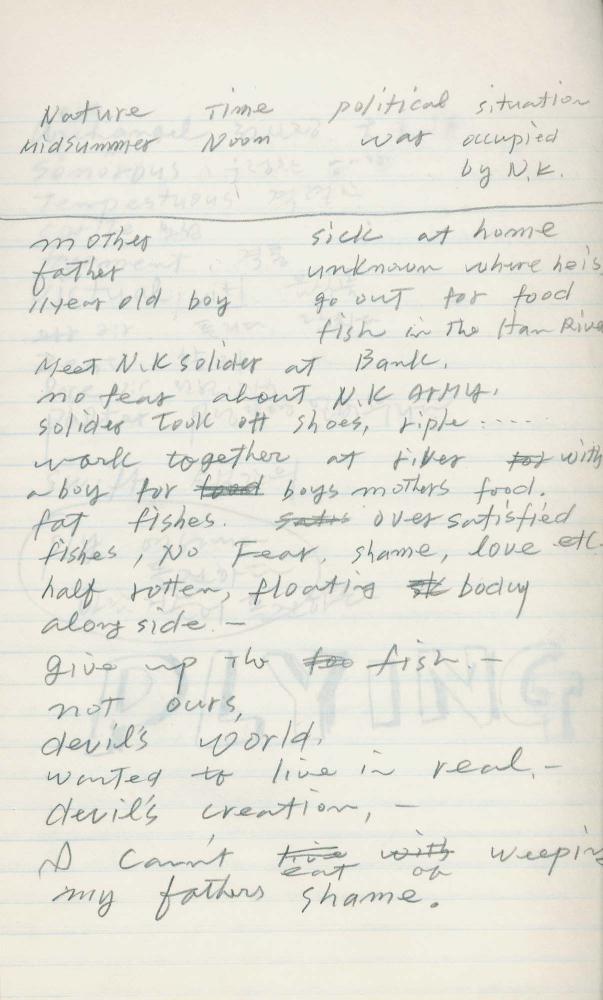 Nature Time political situation
Midsummer Noon was occupied
by N.K.
mother sick at home
father unknown where he is
11year old boy go out for food
fish in the Han River
Meet N.K solider at Bank.
no fear about N.K ARMY.
solider Took off shoes, riple .....
work together at river for with
a boy for food boys mothers food.
fat fishes. satis over satisfied
fishes, No Fear, shame, love etc.
half rotten, floating bodyy
along side. —
give up the foo fish. —
not ours,
devil's world.
wanted to live in real. —
devil's creation, —
I cann't live with weeping
eat on
my fathers shame.
PLYING